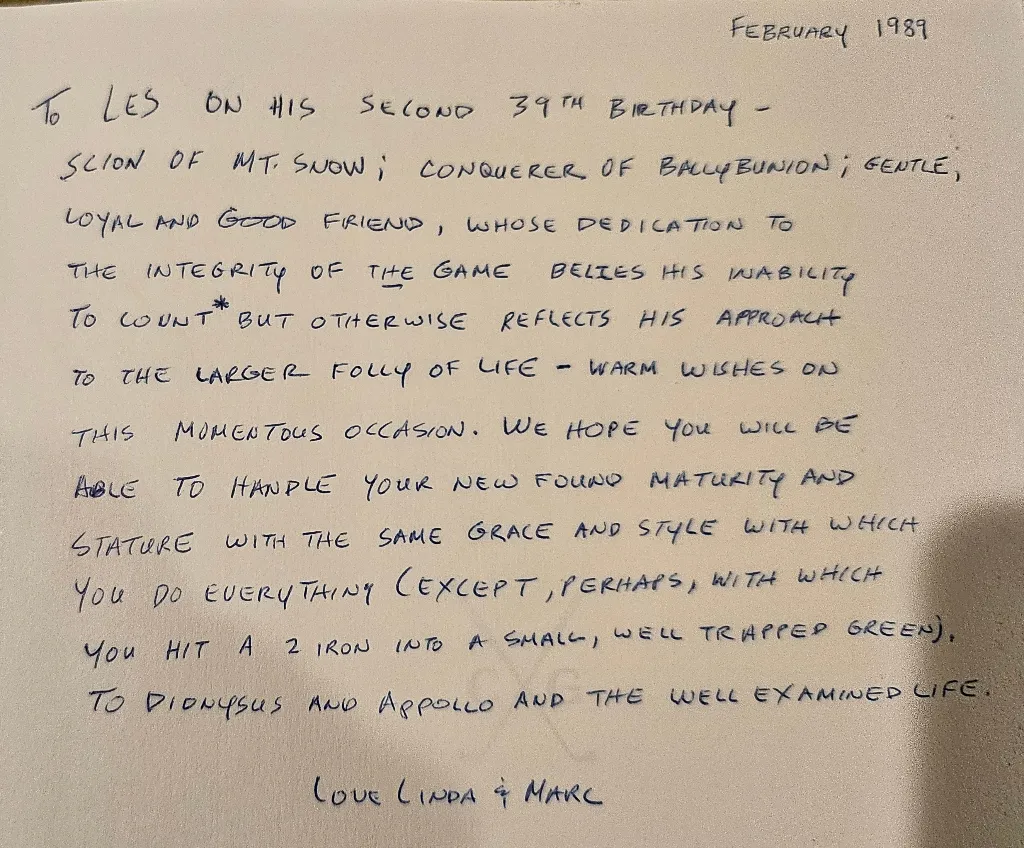 FEBRUARY 1989
TO LES ON HIS SECOND 39TH BIRTHDAY -
SCION OF MT. SNOW; CONQUERER OF BALLYBUNION; GENTLE,
LOYAL AND GOOD FRIEND, WHOSE DEDICATION TO
THE INTEGRITY OF THE GAME BELIES HIS INABILITY
TO COUNT* BUT OTHERWISE REFLECTS HIS APPROACH
TO THE LARGER FOLLY OF LIFE - WARM WISHES ON
THIS MOMENTOUS OCCASION. WE HOPE YOU WILL BE
ABLE TO HANDLE YOUR NEW FOUND MATURITY AND
STATURE WITH THE SAME GRACE AND STYLE WITH WHICH
YOU DO EVERYTHING (EXCEPT, PERHAPS, WITH WHICH
YOU HIT A 2 IRON INTO A SMALL, WELL TRAPPED GREEN).
TO DIONYSUS AND APPOLLO AND THE WELL EXAMINED LIFE.
LOVE LINDA & MARC